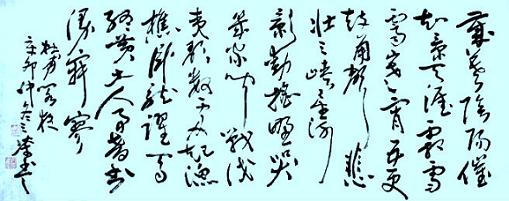 歲暮陰陽催
短景天涯霜雪
霽寒宵五更
鼓角聲悲
壯三峽星河
影動搖野哭
幾家聞戰伐
夷歌數處起漁
樵臥龍躍馬
終黃土人事音書
漫寂寥
杜甫閣夜
辛卯仲冬